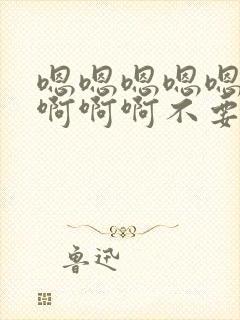 嗯嗯嗯嗯嗯
啊啊啊不要
鲁迅